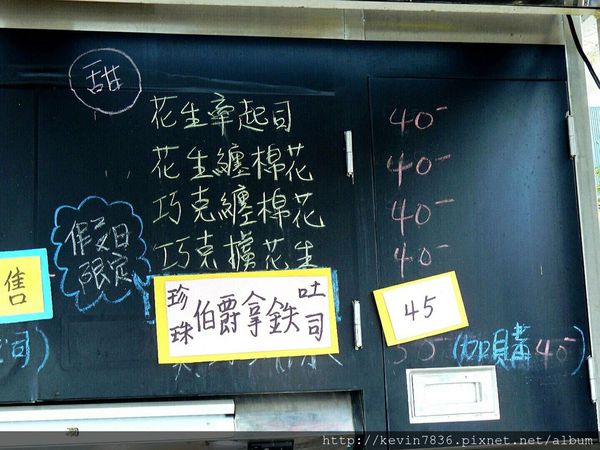 甜
花生牽起司 40-
花生纏棉花 40-
巧克纏棉花 40-
巧克擄花生 40-
假日
限定
售
珍珠 伯爵拿鐵 吐司 45
司) (加購 40-)
http://kevin7836.pixnet.net/album